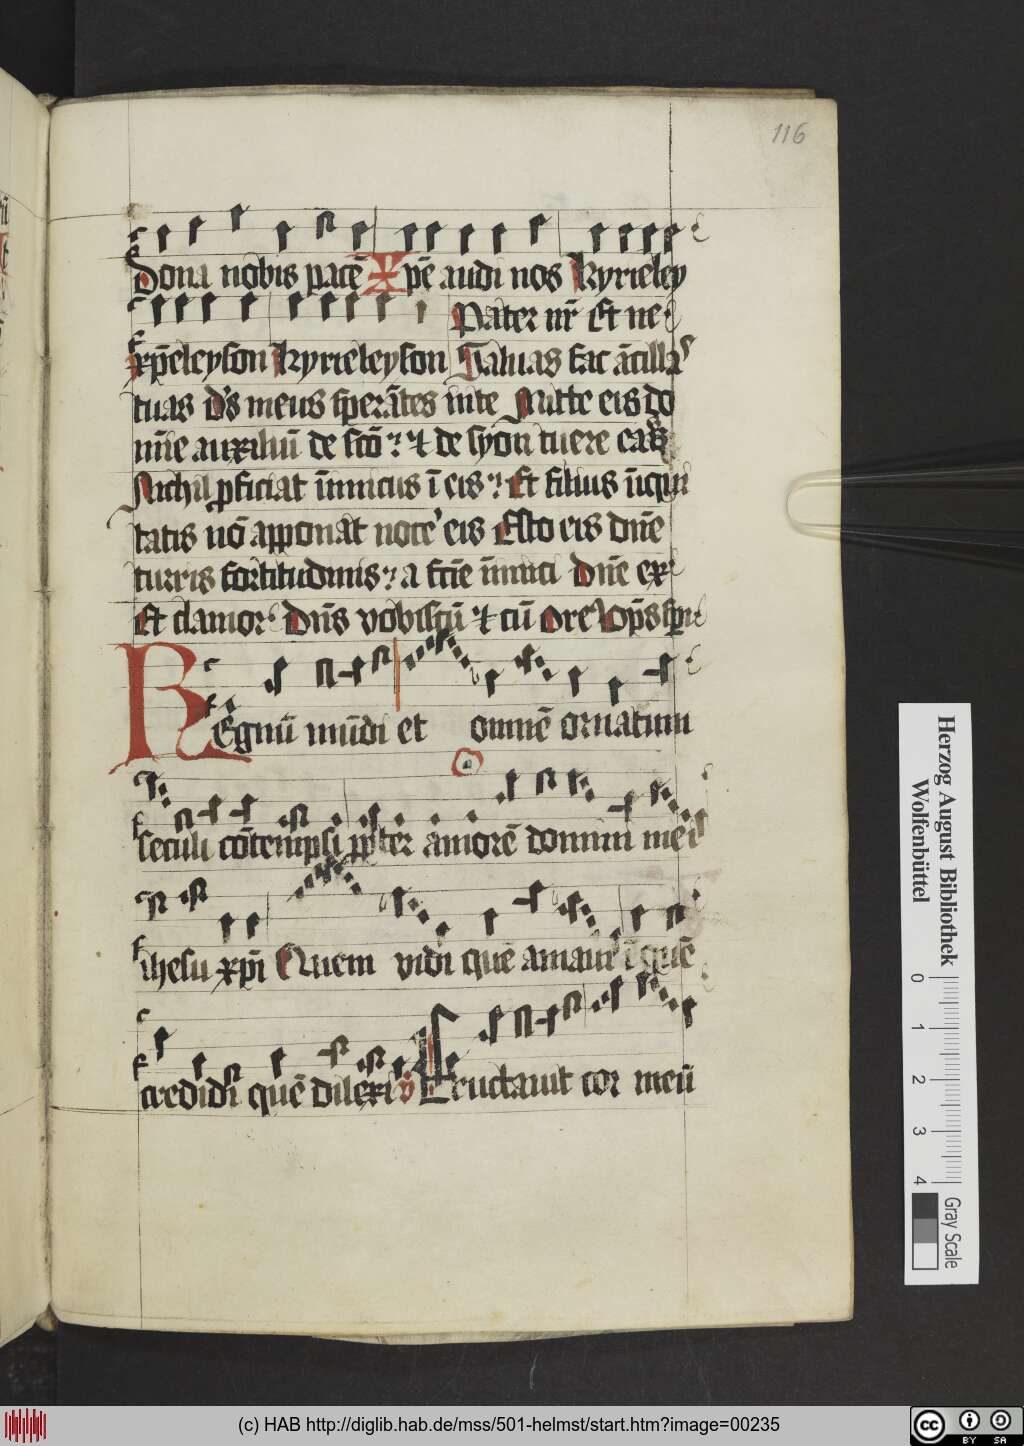 116
Dona nobis pacē Xpē audi nos kyrieley
Pater nr̄ Et ne
xp̄eleyson kyrieleyson Saluas fac ācillas
tuas ds̄ meus sperātes inte Mitte eis do
mīe auxiliū de scō ⁊ de syon tuere eas
Nichil p̱ficiat īimicus ī eis Et filius īiqui
tatis nō apponat noce' eis Esto eis dn̄e
turris fortitudinis a fcīe īimici Dn̄e ex
Et clamor Dn̄s vobiscū ⁊ cū Ore Op̄s
REgnū mūdi et omnē ornatum
seculi cōtempsi ꝓpter amorē domini mei
ihesu xp̄i Quem vidi quē amaui ī quē
credidi quē dilexi v̄ Eructauit cor meū
Herzog August Bibliothek
Wolfenbüttel
0 1 2 3 4
Gray Scale
(c) HAB http://diglib.hab.de/mss/501-helmst/start.htm?image=00235
cc BY SA